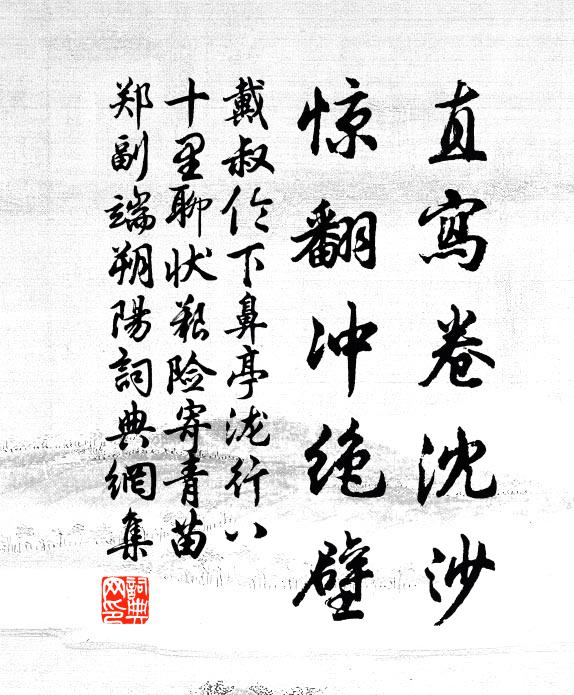 直寫卷沈沙
惊翻冲绝壁
戴叔伦下鼻亭泷行八
十里聊状艰险寄青苗
郑副端朔陽詞典網集
詞典网印